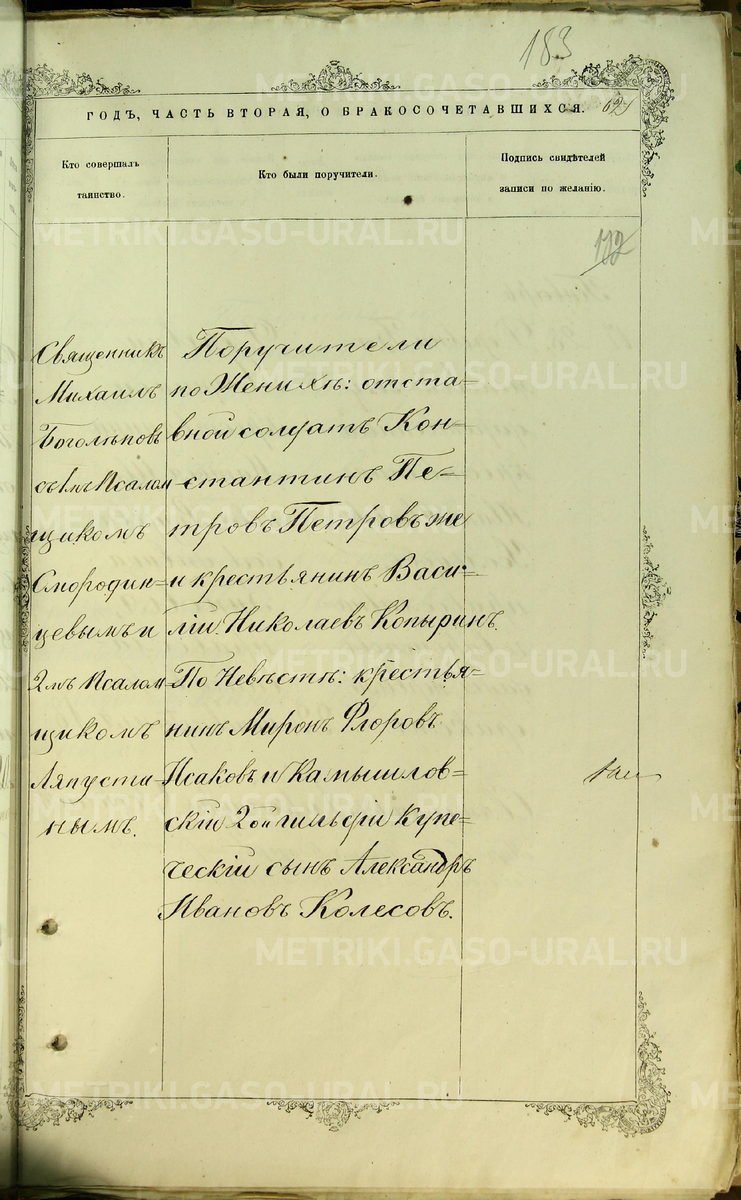 183
ГОДЪ, ЧАСТЬ ВТОРАЯ, О БРАКОСОЧЕТАВШИХСЯ.
Кто совершалъ
таинство.
Кто были поручители.
Подпись свидѣтелей
записи по желанію.
112
Священникъ
Михаилъ
Боголѣповъ
съ 1мъ Псалом
щикомъ
Смородин=
цевымъ и
2мъ Псалом=
щикомъ
Ляпусти=
нымъ.
Поручители
по Женихѣ: отста=
вной солдатъ Кон=
стантинъ Пе=
тровъ Петровъ же
и крестьянинъ Васи=
лій Николаевъ Копыринъ.
По Невѣстѣ: крестья=
нинъ Миронъ Флоровъ
Исаковъ и Камышлов=
скій 2ой гильдіи купе=
ческій сынъ Александръ
Ивановъ Колесовъ.
METRIKI.GASO-URAL.RU